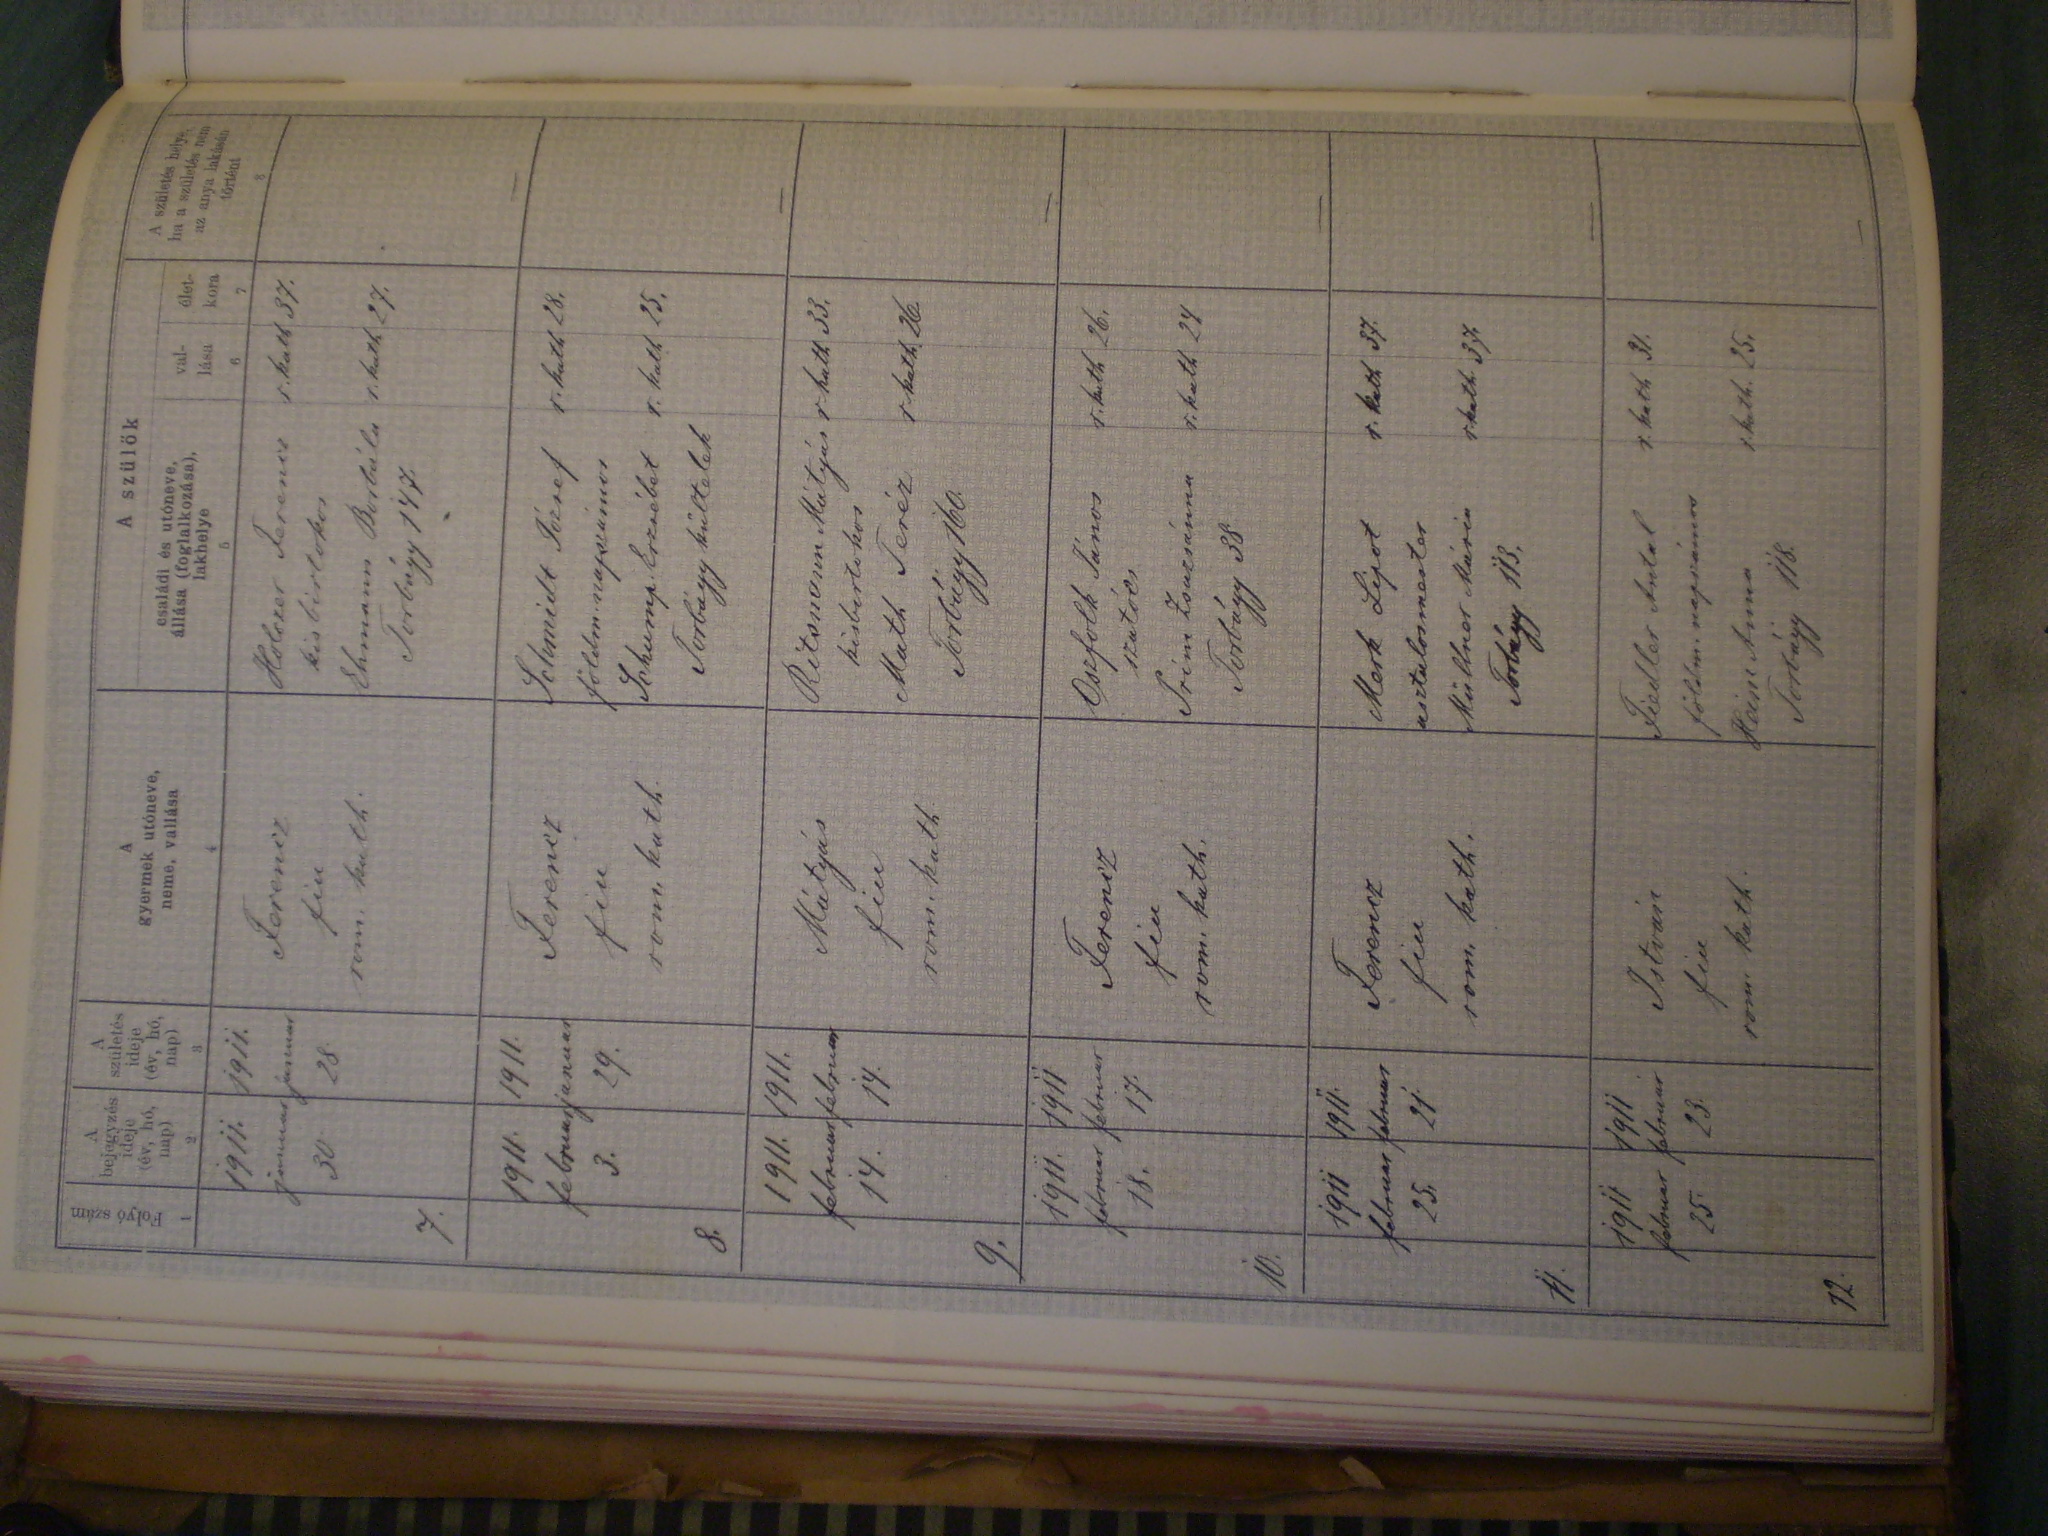 Folyó szám
A bejegyzés ideje (év, hó, nap)
A születés ideje (év, hó, nap)
A gyermek utóneve, neme, vallása
A szülők
családi és utóneve, állása (foglalkozása), lakhelye
val- lása
élet- kora
A születés helye, ha a születés nem az anya lakásán történt
1 2 3 4 5 6 7 8
7.
1911. január 30.
1911. január 28.
Ferencz
fiu
rom. kath.
Holczer Ferencz r. kath 37.
kisbirtokos
Ehmann Borbála r. kath 27.
Torbágy 147.
8.
1911. február 3.
1911. január 29.
Ferencz
fiu
rom. kath.
Schmidt József r. kath 28.
földm. napszámos
Schump. Erzsébet r. kath 25.
Torbágy kültelek
9.
1911. február 14.
1911. február 14.
Mátyás
fiu
rom. kath
Ritsmann Mátyás r kath 33.
kisbirtokos
Muth Teréz r kath. 26.
Torbágy 160.
10.
1911. február 18.
1911 február 17.
Ferencz
fiu
rom. kath.
Oszfolk János r. kath 26.
szatócs
Prim Zsuzsánna r. kath 24
Torbágy 38
11.
1911 február 25.
1911. február 21.
Ferencz
fiu
rom. kath.
Mork Lipot r. kath 37.
asztalosmester
Müllner Mária r. kath 37.
Torbágy 113.
12.
1911 február 25.
1911 február 23.
István
fiu
rom kath.
Fiedler Antal r. kath 31.
földm. napszámos
Hein Anna r. kath. 25.
Torbágy 118.